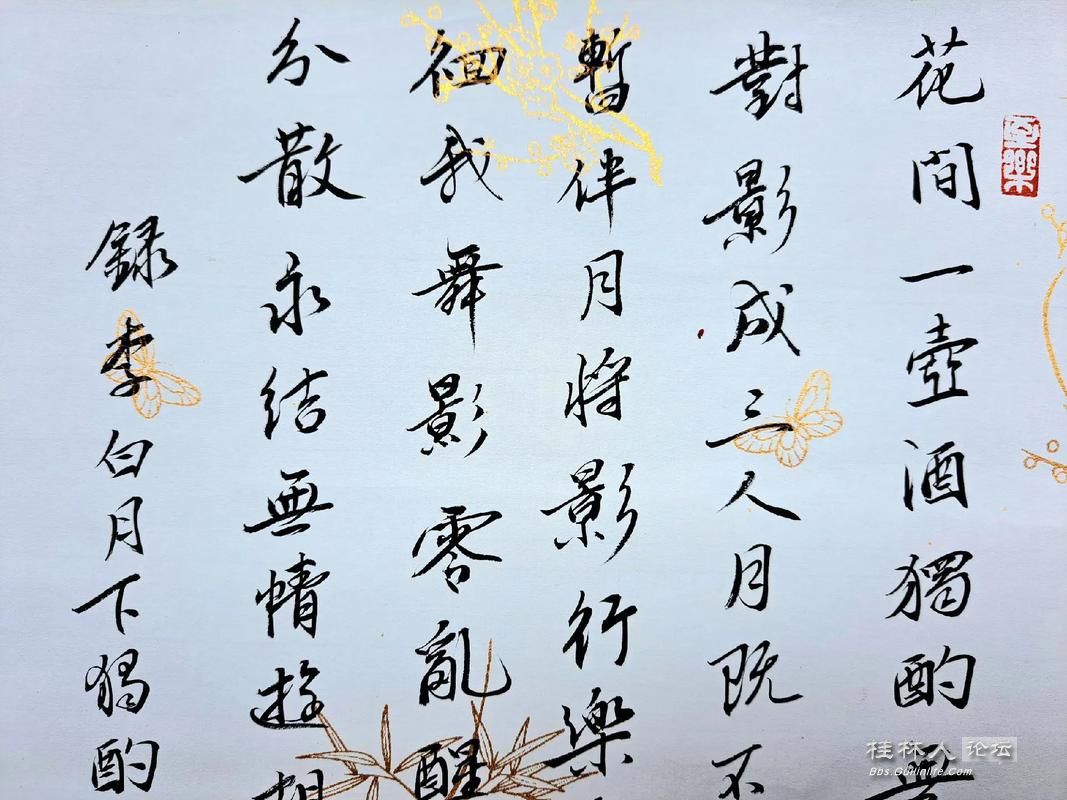 花間一壺酒獨酌無
對影成三人月既不
暫伴月將影行樂
徊我舞影零亂醒
分散永結無情遊相
録李白月下獨酌
至樂
桂林人论坛
Bbs.Guilinlife.Com